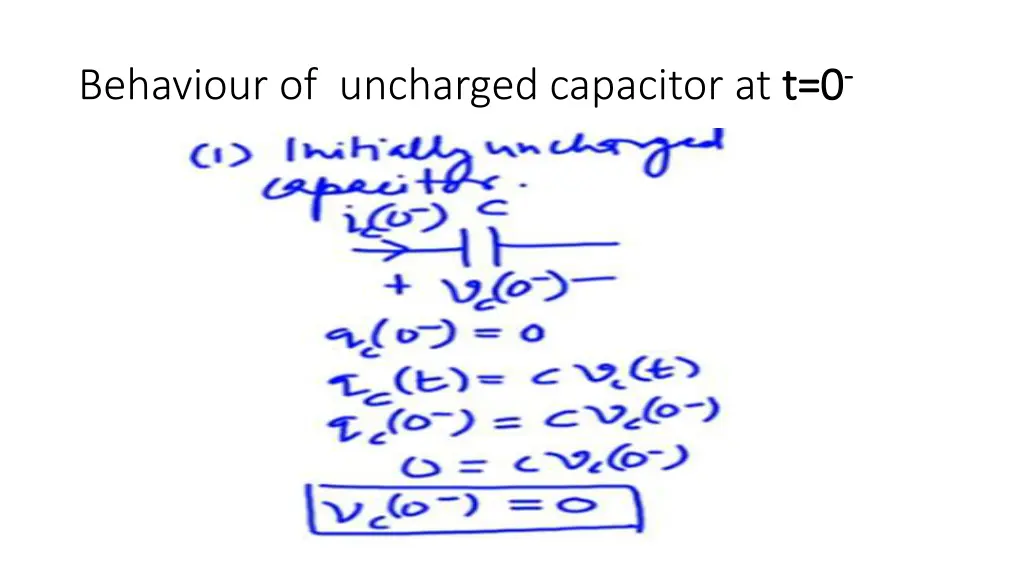 Behaviour of uncharged capacitor at t=0⁻
(1) Initially uncharged
capacitor.
i_c(0⁻) C
+ v_c(0⁻) —
q_c(0⁻) = 0
q_c(t) = C v_c(t)
q_c(0⁻) = C v_c(0⁻)
0 = C v_c(0⁻)
v_c(0⁻) = 0